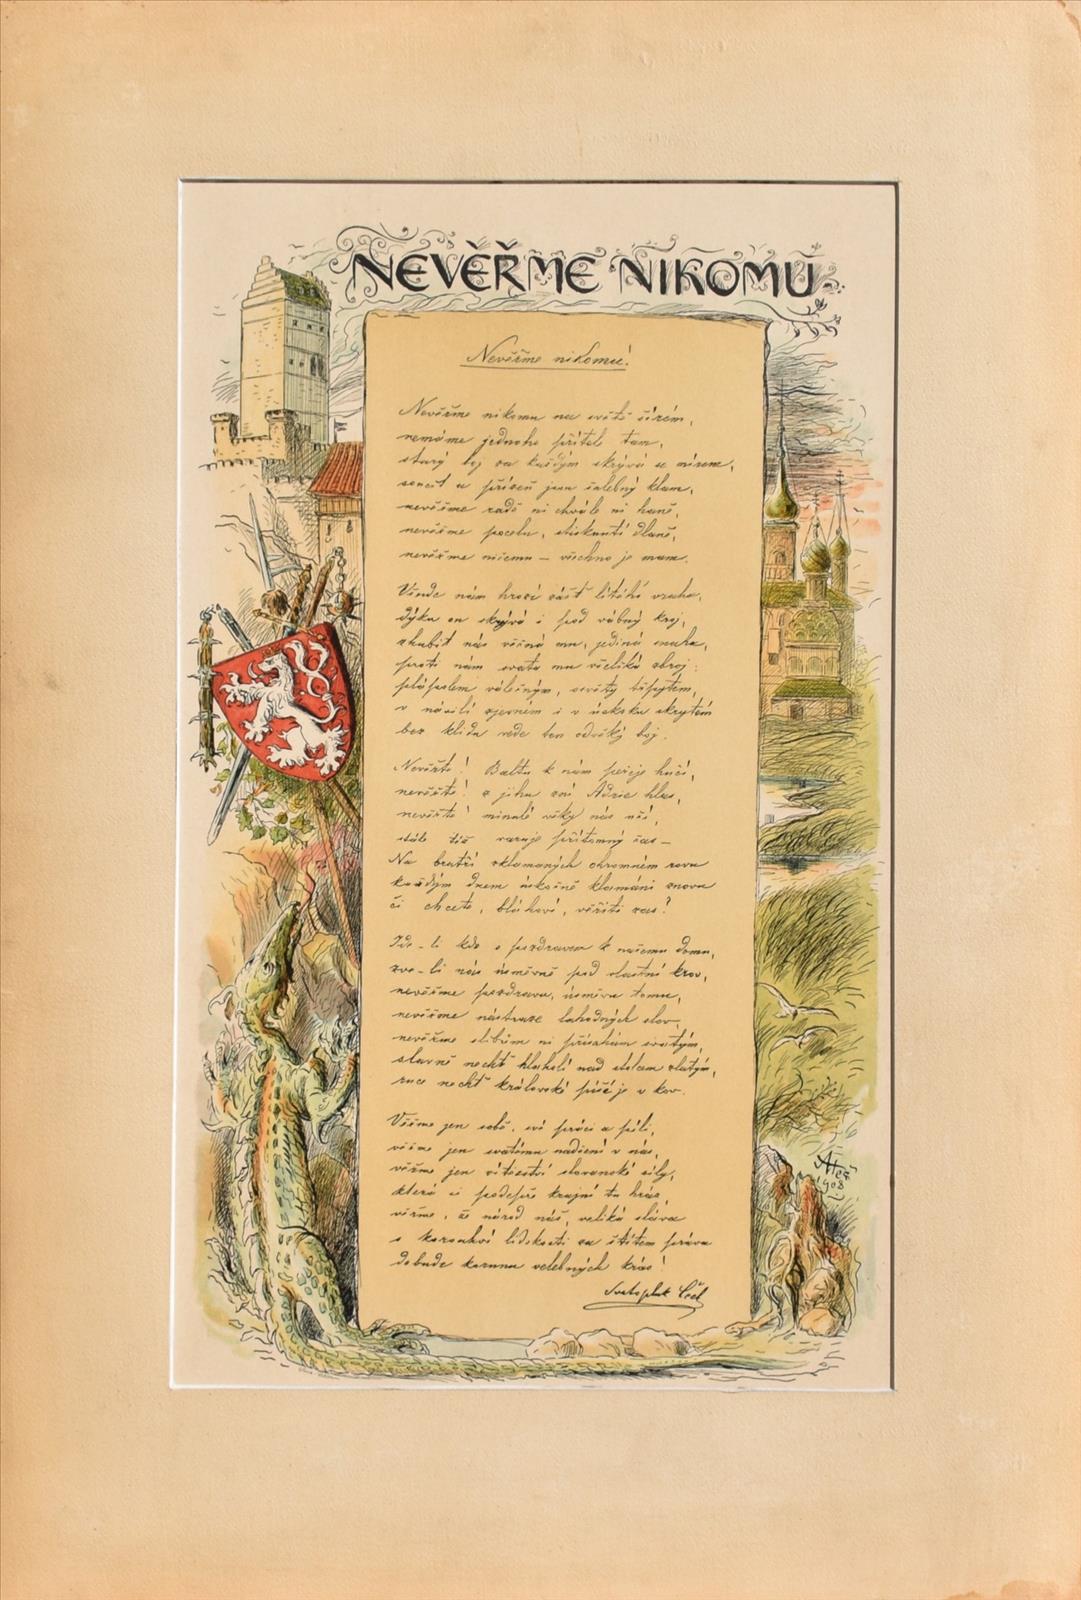 NEVĚŘME NIKOMU
Nevěřme nikomu!
Nevěřme nikomu na světě širém,
nemáme jednoho přítele tam,
starý boj za každým skrývá se mírem,
soucit a přízeň jsou šalebný klam,
nevěřme radě ni chvále ni haně,
nevěřme pocelu, stisknutí dlaně,
nevěřme ničemu – všechno je mam.
Všude nám hrozí zášť lítého vraha,
dýku on skrývá i pod vábný kroj,
zhubit nás věčná mu, jediná snaha,
proti nám svata mu všeliká zbroj:
válečným, osvěty třpytem,
v násilí zjevném i v úskoku skrytém
bez klidu vede ten odvěký boj.
Nevěřte! Baltu k nám hučí,
nevěřte! z jihu zní Adrie hlas,
nevěřte! minulé věky nás učí,
stále též varuje přítomný čas –
Na bratří zklamaných ohromném rovu
každým dnem úskočně klamáni znovu
či chcete, bláhoví, věřiti zas?
Jde-li kdo s pozdravem k našemu domu,
zve-li nás úsměvně pod vlastní krov,
nevěřme pozdravu, úsměvu tomu,
nevěřme nástraze lahodných slov,
nevěřme slibům ni přísahám svatým,
slavně nechť hlaholí nad stolcem zlatým,
ruce nechť královské píší je v kov.
Věřme jen sobě, své práci a píli,
věřme jen svatému nadšení v nás,
věřme jen vítězství slovanské síly,
která si podepře krajní tu hráz,
věřme, že národ náš, veliká sláva
s korouhví lidskosti za štítem práva
dobude korunu velebných krás!
Svatopluk Čech
MAleš
1908